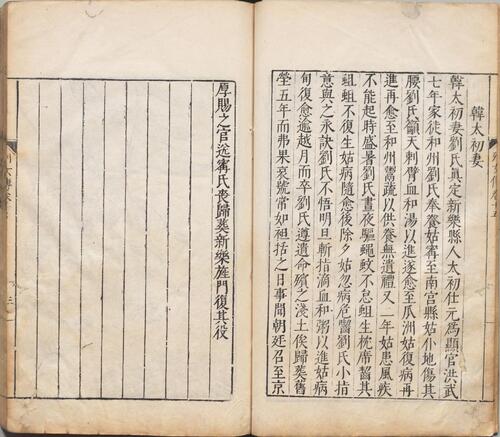 韓太初妻
韓太初妻劉氏真定新樂縣人太初仕元為顯官洪武
七年家徙和州劉氏奉養姑甯至南宫縣姑仆地傷其
腰劉氏籲天刺臂血和湯以進遂愈至瓜洲姑復病再
進再愈至和州鬻蔬以供養無遺禮又一年姑患風疾
不能起時盛暑劉氏晝夜驅蠅蚊不怠姑生枕席齧其
蛆蛆不復生姑病隨愈後除夕姑忽病危齧劉氏小指
意與之永訣劉氏不悟明旦斬指滴血和粥以進姑病
旬復愈逾越月而卒劉氏遵遺命殯之淺土俟歸葬舊
塋五年而弗果哀號常如袒括之日事聞朝廷召至京
厚賜之官送甯氏喪歸葬新樂旌門復其役